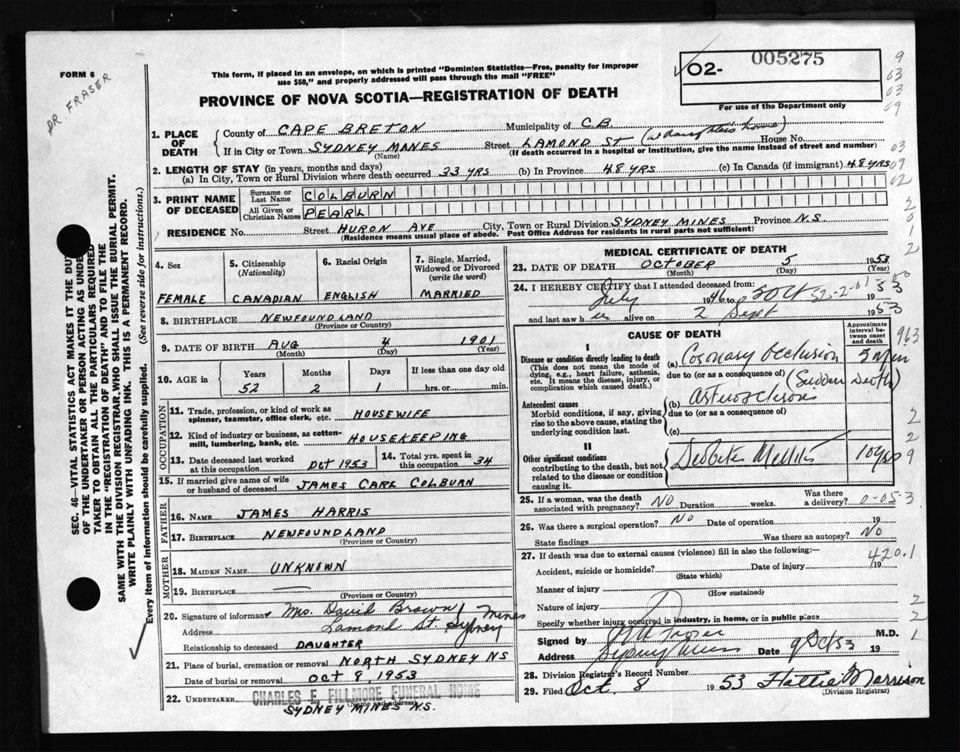 FORM 6
DR FRASER
This form, if placed in an envelope, on which is printed "Dominion Statistics—Free, penalty for improper
use $50," and properly addressed will pass through the mail "FREE"
005275
O2-
For use of the Department only
PROVINCE OF NOVA SCOTIA—REGISTRATION OF DEATH
1. PLACE OF DEATH
County of CAPE BRETON Municipality of C.B.
If in City or Town SYDNEY MINES Street LAMOND ST (daughter's home) House No.
(Name) (If death occurred in a hospital or institution, give the name instead of street and number)
2. LENGTH OF STAY (in years, months and days)
(a) In City, Town or Rural Division where death occurred 33 YRS (b) In Province 48 YRS (c) In Canada (if immigrant) 48 YRS
3. PRINT NAME OF DECEASED
Surname or Last Name COLBURN
All Given or Christian Names PEARL
RESIDENCE No. Street HURON AVE City, Town or Rural Division SYDNEY MINES Province N.S.
(Residence means usual place of abode. Post Office Address for residents in rural parts not sufficient)
4. Sex
FEMALE
5. Citizenship (Nationality)
CANADIAN
6. Racial Origin
ENGLISH
7. Single, Married, Widowed or Divorced (write the word)
MARRIED
8. BIRTHPLACE NEWFOUNDLAND
(Province or Country)
9. DATE OF BIRTH AUG 4 1901
(Month) (Day) (Year)
10. AGE in Years Months Days If less than one day old
52 2 1 hrs. or min.
OCCUPATION
11. Trade, profession, or kind of work as spinner, teamster, office clerk, etc. HOUSEWIFE
12. Kind of industry or business, as cotton-mill, lumbering, bank, etc. HOUSEKEEPING
13. Date deceased last worked at this occupation OCT 1953
14. Total yrs. spent in this occupation 34
15. If married give name of wife or husband of deceased JAMES CARL COLBURN
FATHER
16. NAME JAMES HARRIS
17. BIRTHPLACE NEWFOUNDLAND
(Province or Country)
MOTHER
18. MAIDEN NAME UNKNOWN
19. BIRTHPLACE
(Province or Country)
20. Signature of informant Mrs. David Brown
Address Lamond St. Sydney Mines
Relationship to deceased DAUGHTER
21. Place of burial, cremation or removal NORTH SYDNEY NS
Date of burial or removal OCT 8, 1953
22. UNDERTAKER CHARLES E. FILLMORE FUNERAL HOME
(Name and address)
SYDNEY MINES N.S.
MEDICAL CERTIFICATE OF DEATH
23. DATE OF DEATH OCTOBER 5 1953
(Month) (Day) (Year)
24. I HEREBY CERTIFY that I attended deceased from:
July 1946
and last saw her alive on 2 Sept 1953
CAUSE OF DEATH
Approximate interval between onset and death
I
Disease or condition directly leading to death
(This does not mean the mode of dying, e.g., heart failure, asthenia, etc. It means the disease, injury, or complication which caused death.)
(a) Coronary Occlusion 5 Min
due to (or as a consequence of) (Sudden Death)
Antecedent causes
Morbid conditions, if any, giving rise to the above cause, stating the underlying condition last.
(b) Arteriosclerosis
due to (or as a consequence of)
(c)
II
Other significant conditions
contributing to the death, but not related to the disease or condition causing it.
Diabetes Mellitus 10 yrs
25. If a woman, was the death associated with pregnancy? NO Duration weeks. Was there a delivery?
26. Was there a surgical operation? NO Date of operation 19
State findings Was there an autopsy? NO
27. If death was due to external causes (violence) fill in also the following:—
420.1
Accident, suicide or homicide? Date of injury 19
(State which)
Manner of injury
(How sustained)
Nature of injury
Specify whether injury occurred in industry, in home, or in public place
Signed by M.D.
Address Sydney Mines Date 9 Oct/53 19
28. Division Registrar's Record Number
29. Filed Oct. 8 1953 Hattie Morrison
(Division Registrar)
SEC. 46—VITAL STATISTICS ACT MAKES IT THE DUTY
OF THE UNDERTAKER OR PERSON ACTING AS UNDER-
TAKER TO OBTAIN ALL THE PARTICULARS REQUIRED
IN THE "REGISTRATION OF DEATH" AND TO FILE THE
SAME WITH THE DIVISION REGISTRAR, WHO SHALL ISSUE THE BURIAL PERMIT.
WRITE PLAINLY WITH UNFADING INK. THIS IS A PERMANENT RECORD.
Every item of information should be carefully supplied. (See reverse side for instructions.)